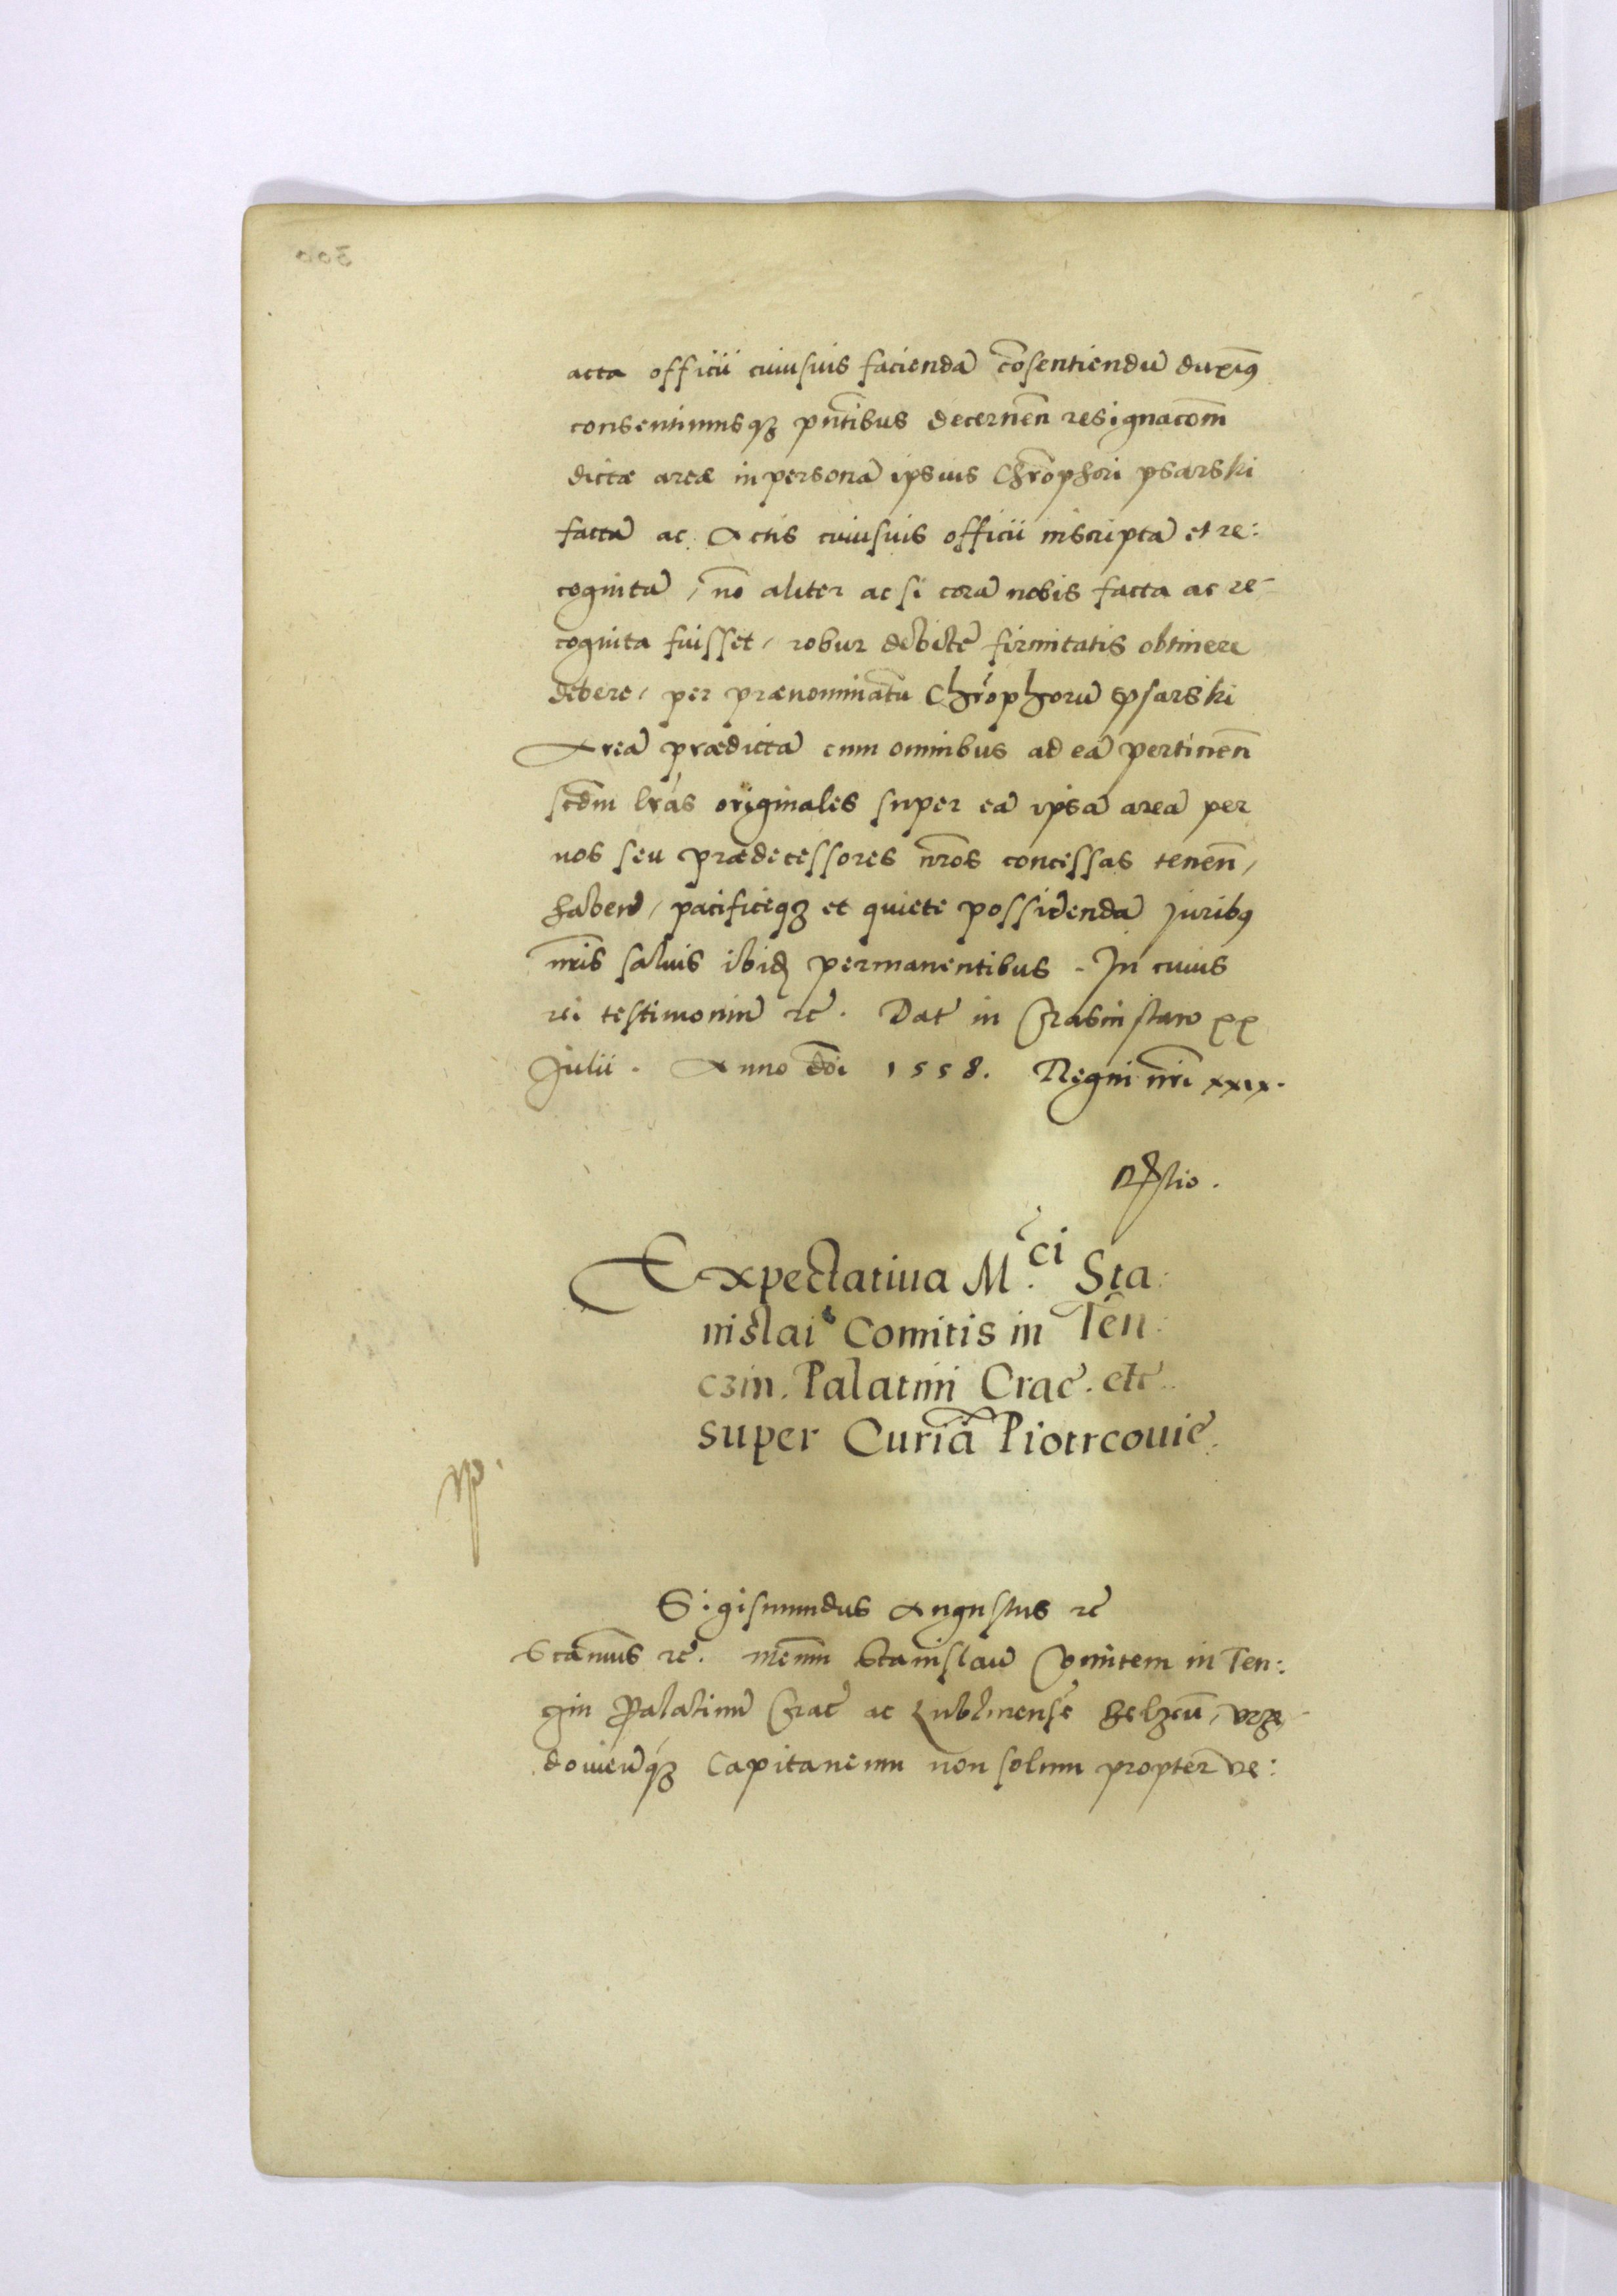 acta officii cuiusuis faciendā cōsentiendū duxim9
consentimusqȝ pn̄tibus decernen̄ resignacōm
dictæ areæ in personā ipsius Chrōphori psarski
factā ac Actis cuiusuis officii inscriptā et re:
cognitā, nō aliter ac si corā nobis facta ac re-
cognita fuisset, robur debitē firmitatis obtinere
debere, per prænominatū Chrōphorū Psarski
Areā prædictā cum omnibus ad eā pertinen̄
scdm̄ lrās originales super eā ipsā areā per
nos seu prædecessores nr̄os concessas tenen̄,
haben̄, pacificeqȝ et quiete possidendā juribꝯ
nr̄is saluis ibidꝫ permanentibus. In cuius
rei testimoniū rc̄. Dat̄ in Crasnistaw xx
Julii. Anno dn̄i 1558. Regni nr̄i xxix.
Expectatiua M.ci Sta:
nislai Comitis in Ten:
czin. Palatini Crac̄. etc̄.
super Curiā Piotrcouiē.
Sigismundus Augustus rc̄
Stan̄us rc̄. Stanislaū Comitem in Ten:
czin Palatinū Crac̄ ac Lublinensē Belzeū,
douieūqȝ Capitaneum non solum propter ve: